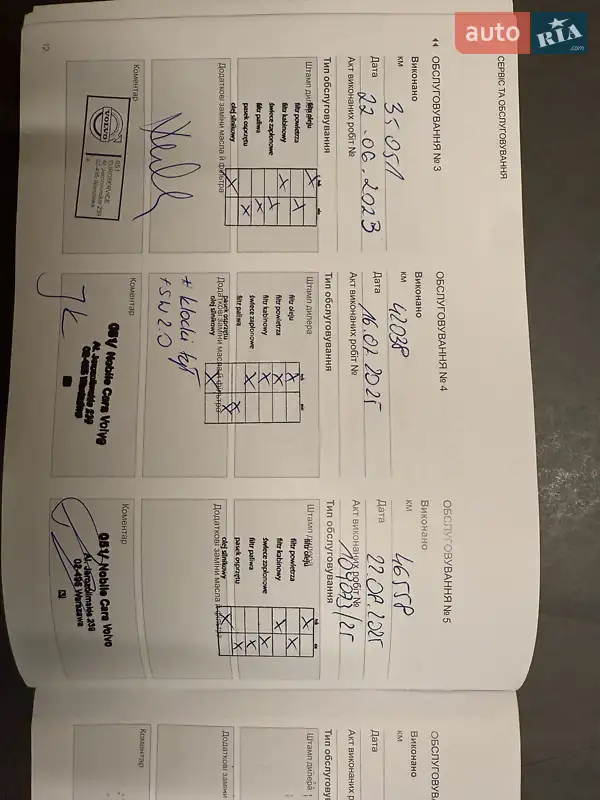 auto RIA .com
СЕРВІС ТА ОБСЛУГОВУВАННЯ
ОБСЛУГОВУВАННЯ № 3
Виконано
км 35 051
Дата 22.06.2023
Акт виконаних робіт №
Тип обслуговування
Штамп дилера
filtr oleju
filtr powietrza
filtr kabinowy
świece zapłonowe
filtr paliwa
pasek osprzętu
olej silnikowy
Додаткові заміни масла й фільтра
Коментар
VOLVO
EUROSERVICE
12
ОБСЛУГОВУВАННЯ № 4
Виконано
км 42038
Дата 16.07.2025
Акт виконаних робіт №
Тип обслуговування
Штамп дилера
filtr oleju
filtr powietrza
filtr kabinowy
świece zapłonowe
filtr paliwa
pasek osprzętu
olej silnikowy
Додаткові заміни масла й фільтра
+ klocki tył
+ SW 2.0
Коментар
05V Nobile Cars Volvo
Al. Jerozolimskie 239
02-495 Warszawa
ОБСЛУГОВУВАННЯ № 5
Виконано
км 46558
Дата 22.08.2025
Акт виконаних робіт № 104093/25
Тип обслуговування
Штамп дилера
filtr oleju
filtr powietrza
filtr kabinowy
świece zapłonowe
filtr paliwa
pasek osprzętu
olej silnikowy
Додаткові заміни масла й фільтра
Коментар
05V Nobile Cars Volvo
Al. Jerozolimskie 239
02-495 Warszawa
ОБСЛУГОВУВА
Виконано
км
Дата
Акт виконаних робіт №
Тип обслуговування
Штамп дилера
Додаткові заміни
Коментар